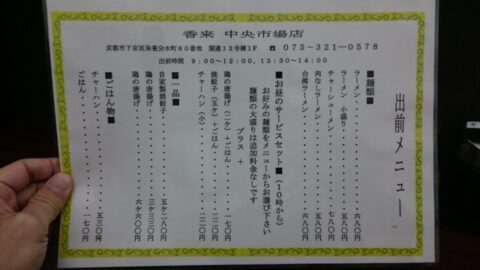 香来 中央市場店
京都市下京区朱雀分木町80番地 関連12号棟1F ☎ 075-321-0578
出前時間 9:00~12:00、13:30~14:00
出前メニュー
■麺類■
ラーメン・・・・・・六八〇円
ラーメン 小盛り・・・五八〇円
チャーシューメン・・・七八〇円
肉なしラーメン・・・・五八〇円
台湾ラーメン・・・・・六八〇円
■お昼のサービスセット■(10時から)
お好みの麺類をメニューからお選び下さい
麺類の大盛りは追加料金なしです
プラス +
鶏の唐揚げ(二ケ)+ごはん・・・一七〇円
焼餃子(五ケ)+ごはん・・・・・二二〇円
チャーハン(小)・・・・・・・・二二〇円
■一品■
自家製焼餃子・・・・・五ケ二八〇円
鶏の唐揚げ・・・・・・三ケ三三〇円
鶏の唐揚げ・・・・・・六ケ六〇〇円
■ごはん物■
チャーハン・・・・・・五三〇円
ごはん・・・・・・・・一七〇円